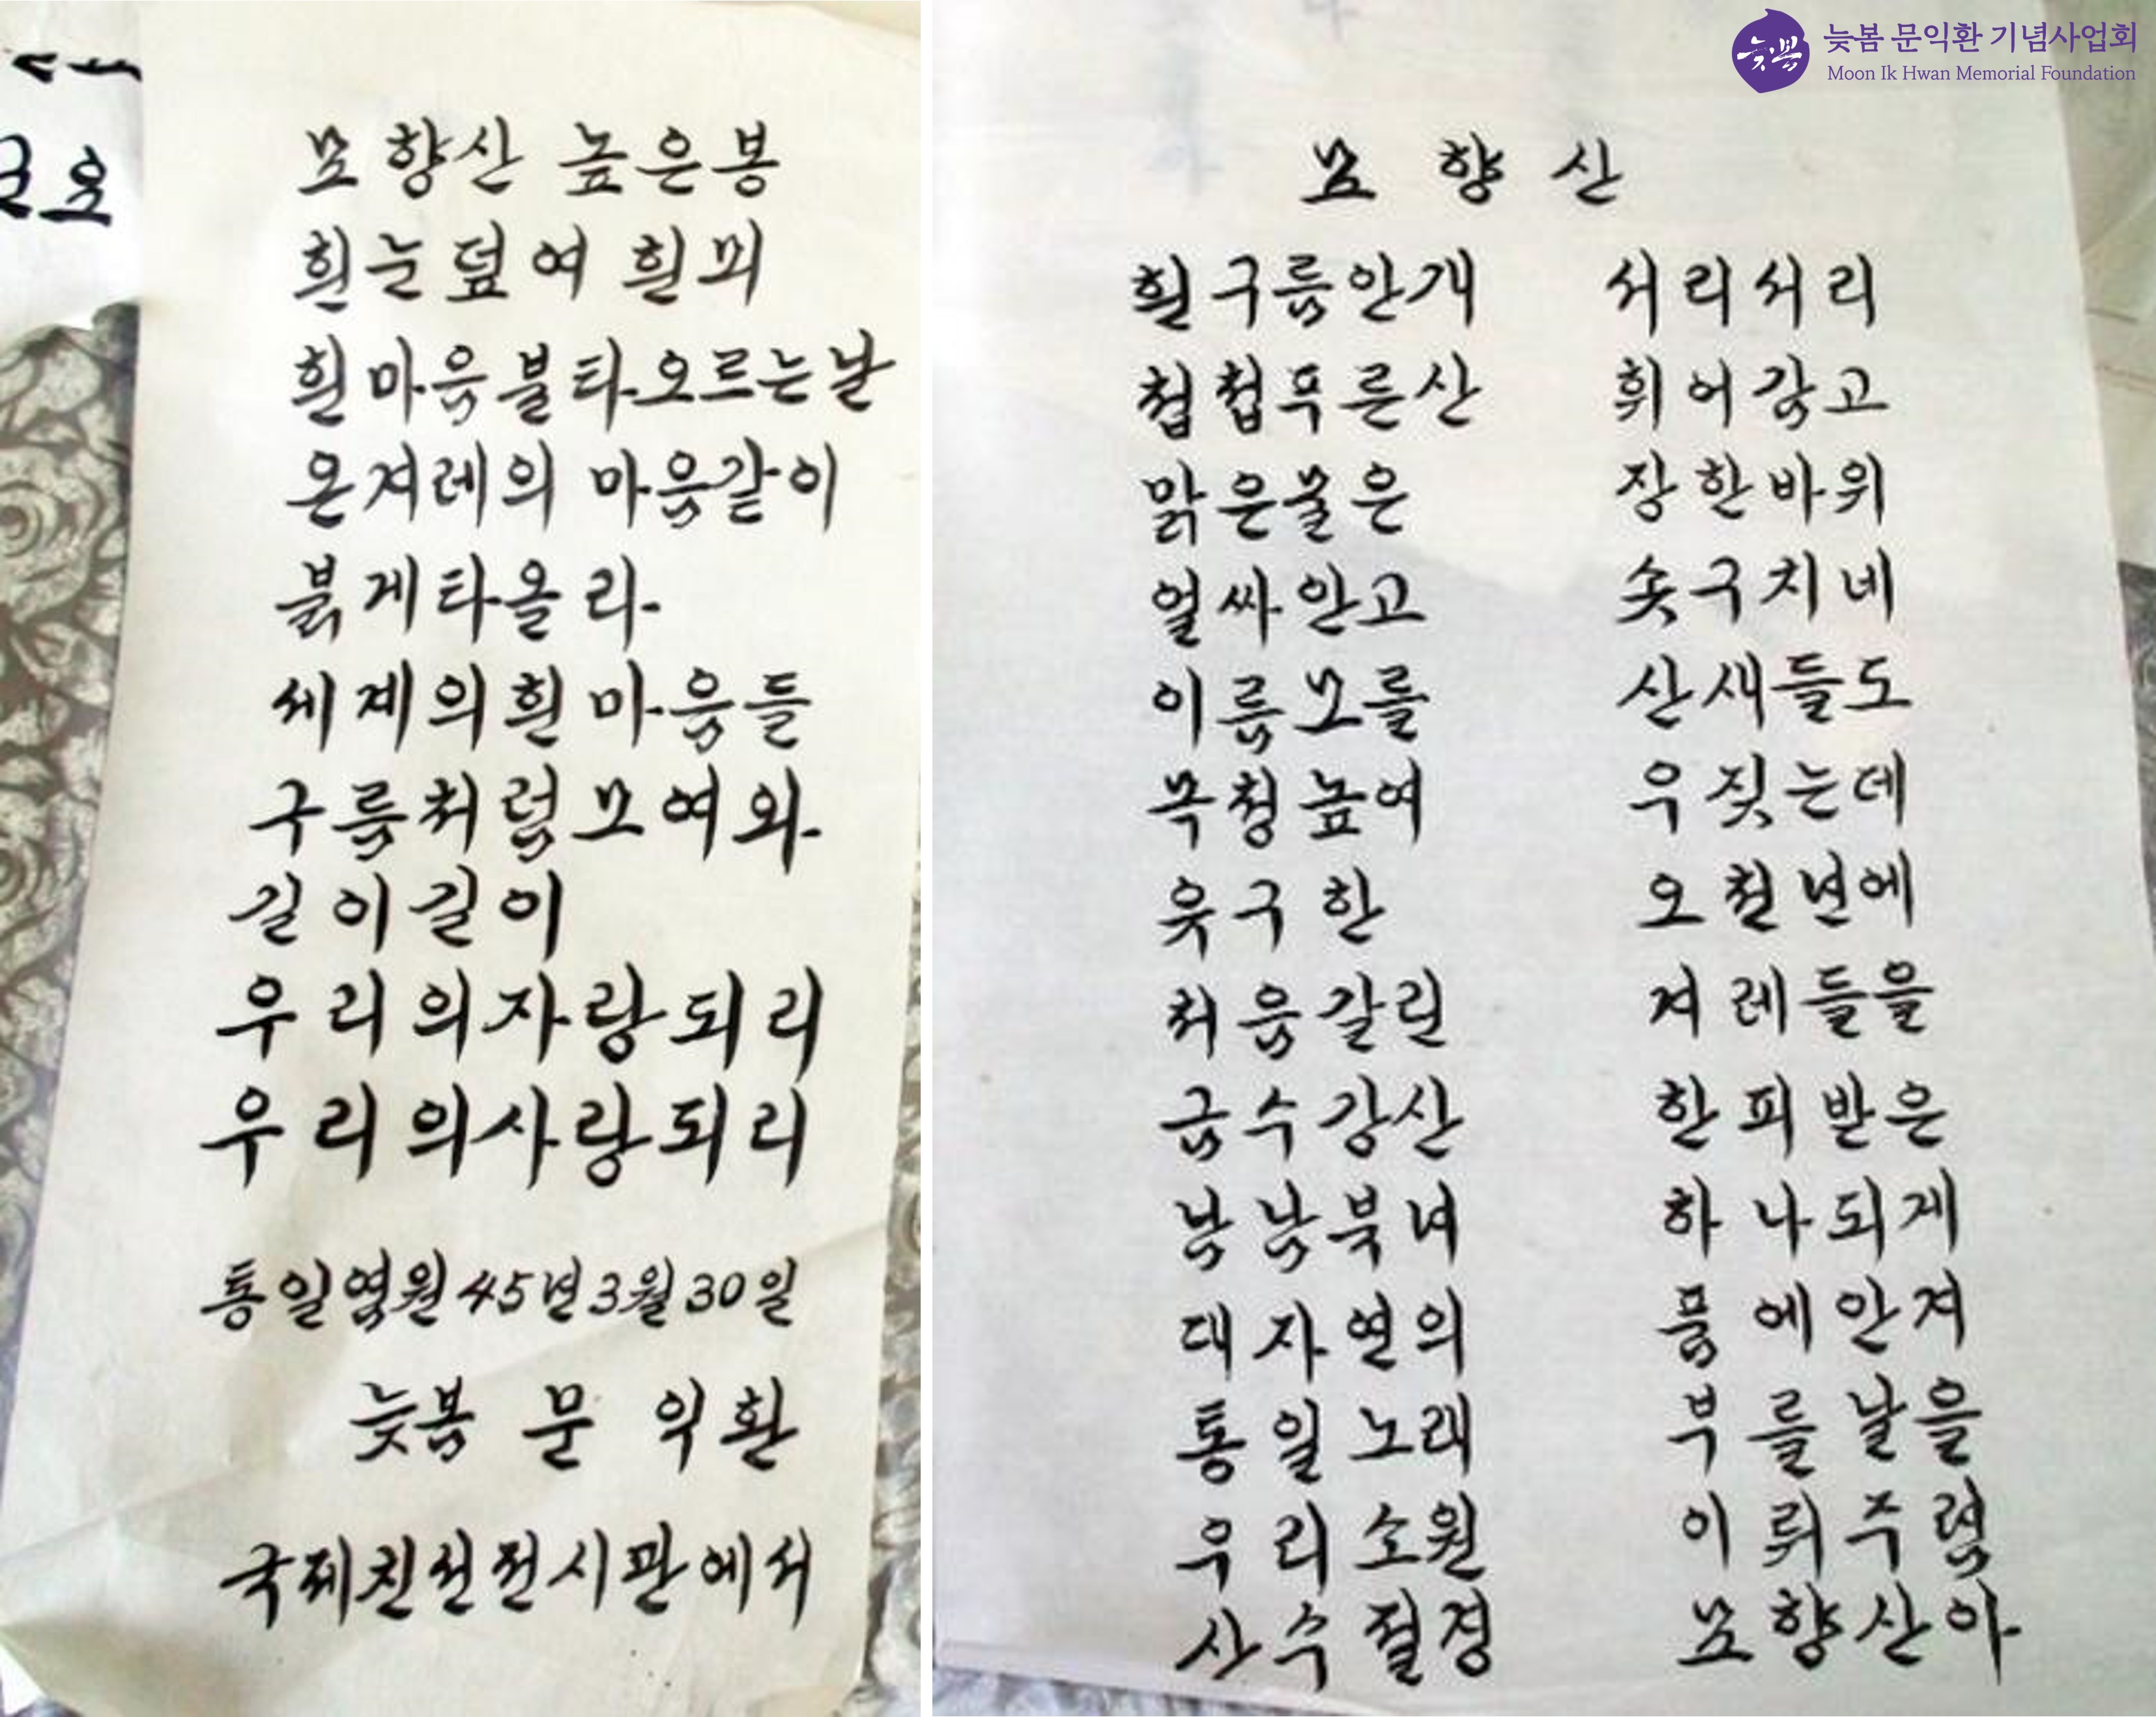 묘향산 높은봉
흰눈덮여 흰뫼
흰마음불타오르는날
온겨레의 마음같이
붉게타올라
세계의흰마음들
구름처럼모여와
길이길이
우리의자랑되리
우리의사랑되리
통일염원45년3월30일
늦봄 문익환
국제친선전시관에서
늦봄
늦봄 문익환 기념사업회
Moon Ik Hwan Memorial Foundation
묘향산
흰구름안개 서리서리
첩첩푸른산 휘어감고
맑은물은 장한바위
얼싸안고 솟구치네
이름모를 산새들도
목청높여 우짖는데
유구한 오천년에
처음갈린 겨레들을
금수강산 한피받은
남남북녀 하나되게
대자연의 품에안겨
통일노래 부를날을
우리소원 이뤄주렴
산수절경 묘향산아